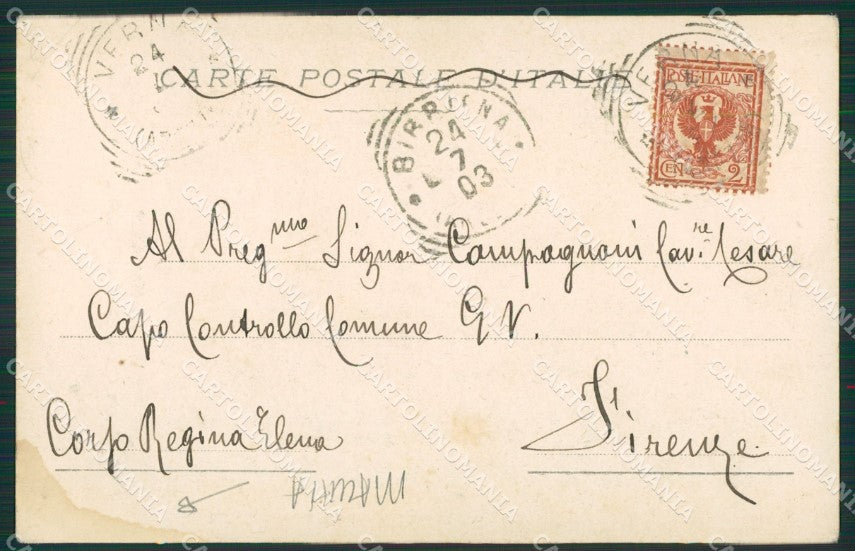 CARTE POSTALE D'ITALIE
POSTE ITALIANE
CEN 2
24
BIRRIONA
24
7
03
Al Preg.mo Signor Campagnoni Cav.re Cesare
Capo Controllo Comune G.N.
Corso Regina Elena
Firenze
MACCHIA
CARTOLINOMANIA